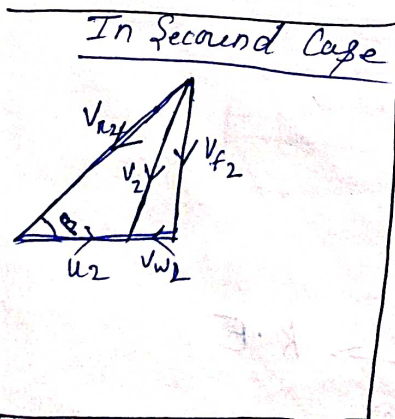 In Secound Case
VR2
V2
Vf2
β
u2
Vw2